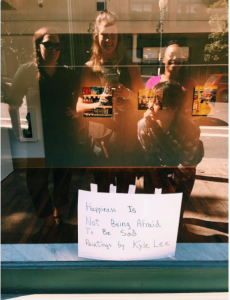 Happiness Is
Not Being Afraid
To Be Sad
Paintings by Kyle Lee